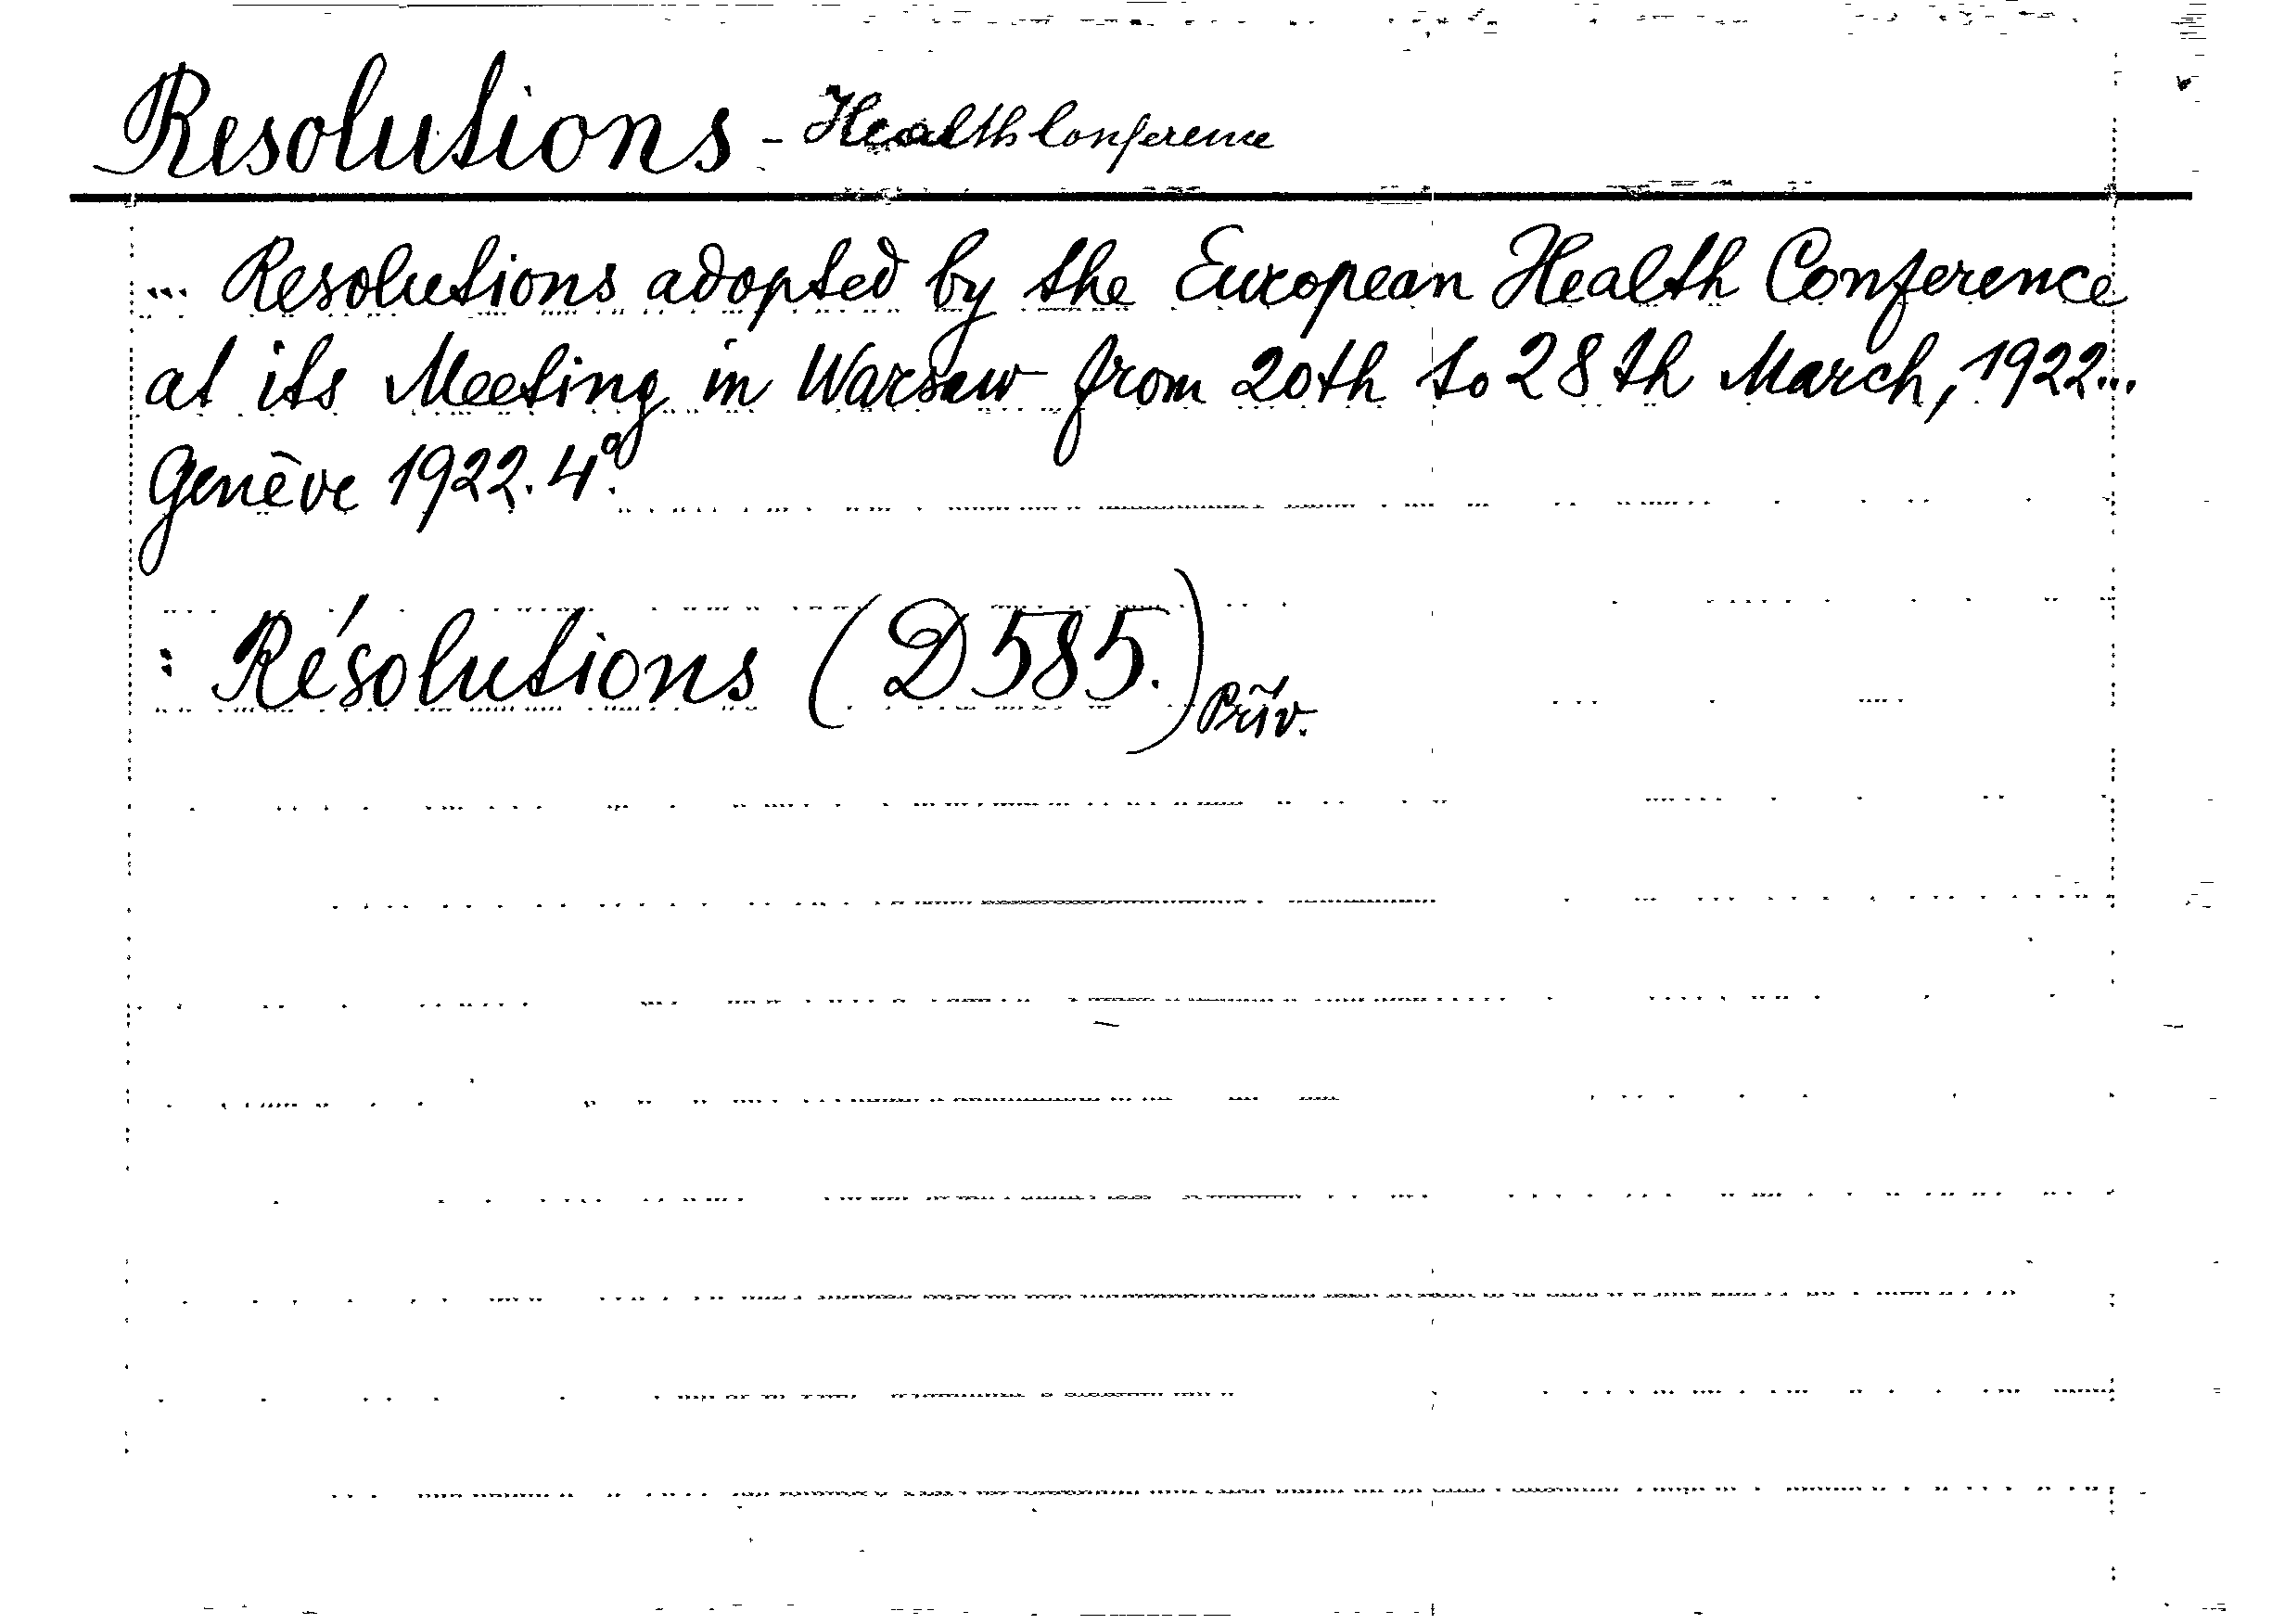 Resolutions - Health Conference
... Resolutions adopted by the European Health Conference
at its Meeting in Warsaw from 20th to 28th March, 1922...
Genève 1922. 4º.
: Résolutions (D 585.) Priv.